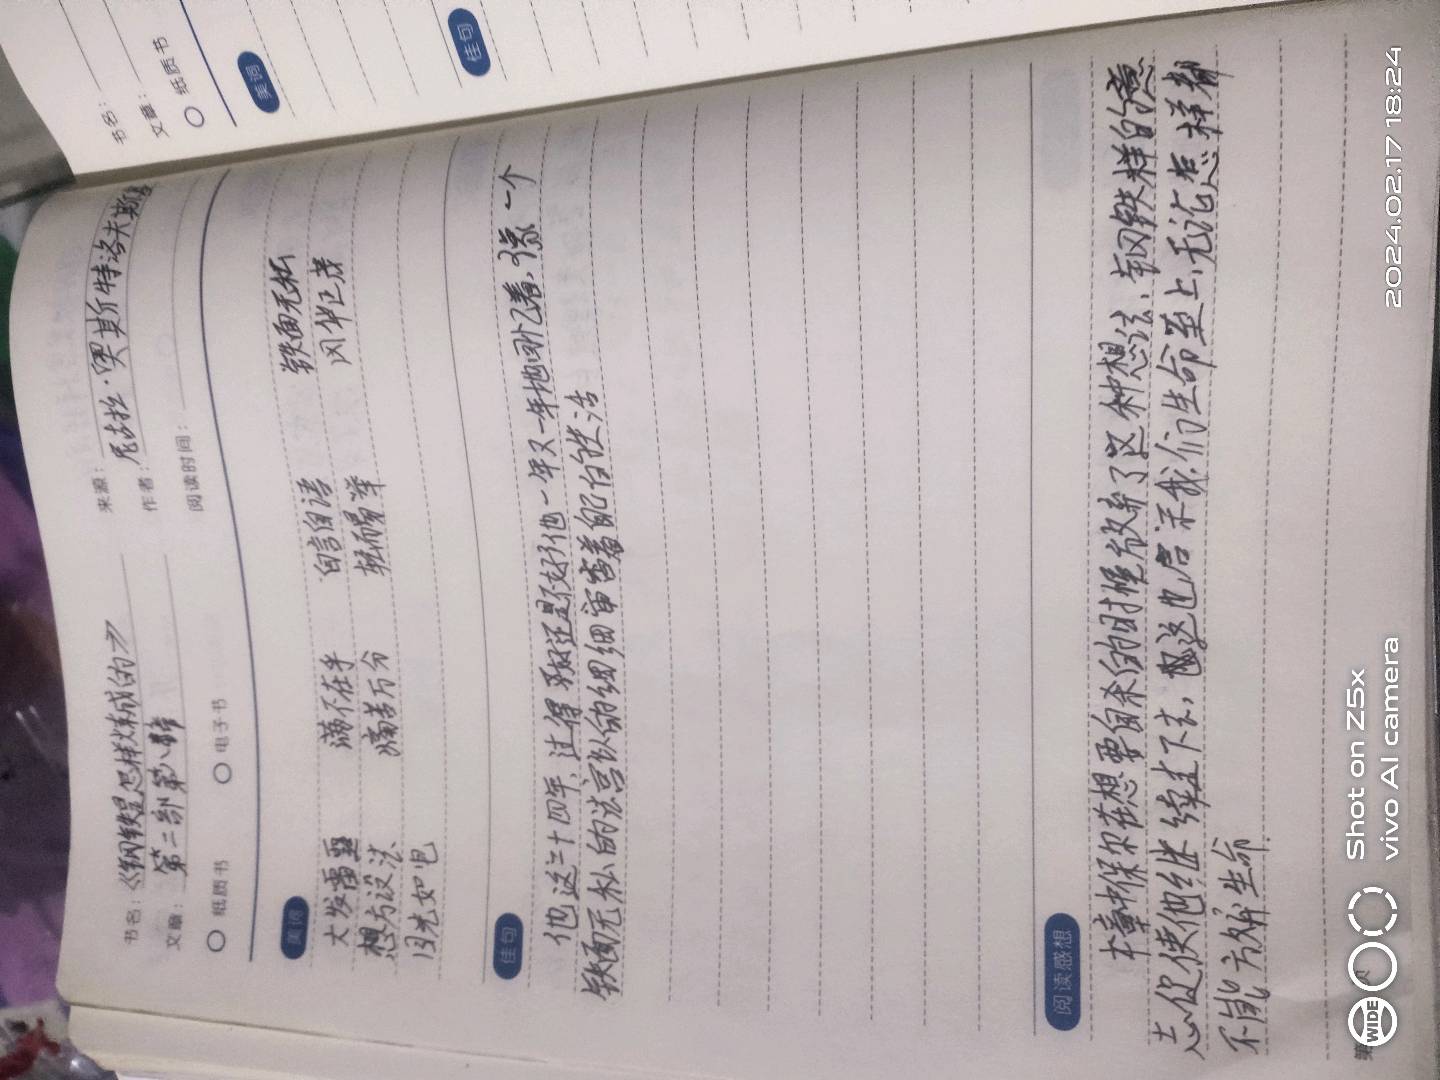 书名:《钢铁是怎样炼成的》 来源:
文章: 第二部第八章 作者: 尼古拉·奥斯特洛夫斯基
纸质书 电子书 阅读时间:
美词
大发雷霆 满不在乎 自言自语 铁面无私
想方设法 痛苦万分 轻而易举 风华正茂
月光如
佳句
他这二十四年,过得好还是不好?他一年又一年地回忆着,像一个
铁面无私的法官似的细细审着自己的生活
阅读感想
本章中保尔在想要自杀的时候放弃了这种想法,钢铁样的意
志促使他继续走下去,这也启示我们生命至上,无论怎样都
不能放弃生命.
书名:
文章:
纸质书
美词
佳句
第 页
WIDE
Shot on Z5x
vivo AI camera
2024.02.17 18:24